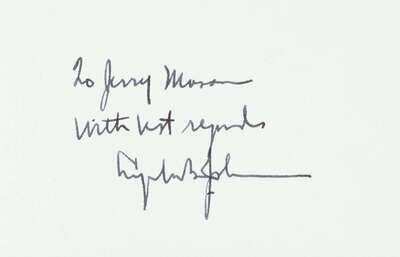 To Jerry Mason
With best regards
Lyndon B. Johnson